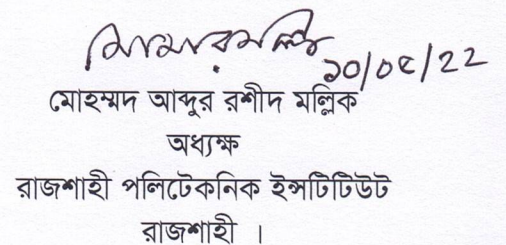 ১০/০৫/২২
মোহম্মদ আব্দুর রশীদ মল্লিক
অধ্যক্ষ
রাজশাহী পলিটেকনিক ইন্সটিটিউট
রাজশাহী ।